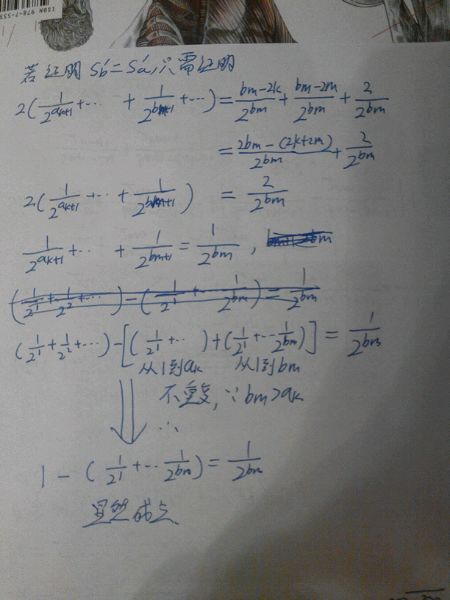 若证明 Sb'=Sa',只需证明
2(1/2^(ak+1)+… +1/2^(bm+1)+…)=(bm-2k)/2^bm+(bm-2m)/2^bm+2/2^bm
=(2bm-(2k+2m))/2^bm+2/2^bm
2(1/2^(ak+1)+…+1/2^(bm+1)) = 2/2^bm
1/2^(ak+1)+… +1/2^(bm+1)=1/2^bm,
(1/2^1+1/2^2+…)-(1/2^1+… 1/2^bm)=1/2^bm
(1/2^1+1/2^2+…)-[(1/2^1+…)+(1/2^1+…1/2^bm)]=1/2^bm
从1到ak 从1到bm
不重复,∵bm>ak
∴
1-(1/2^1+…1/2^bm)=1/2^bm
显然成立